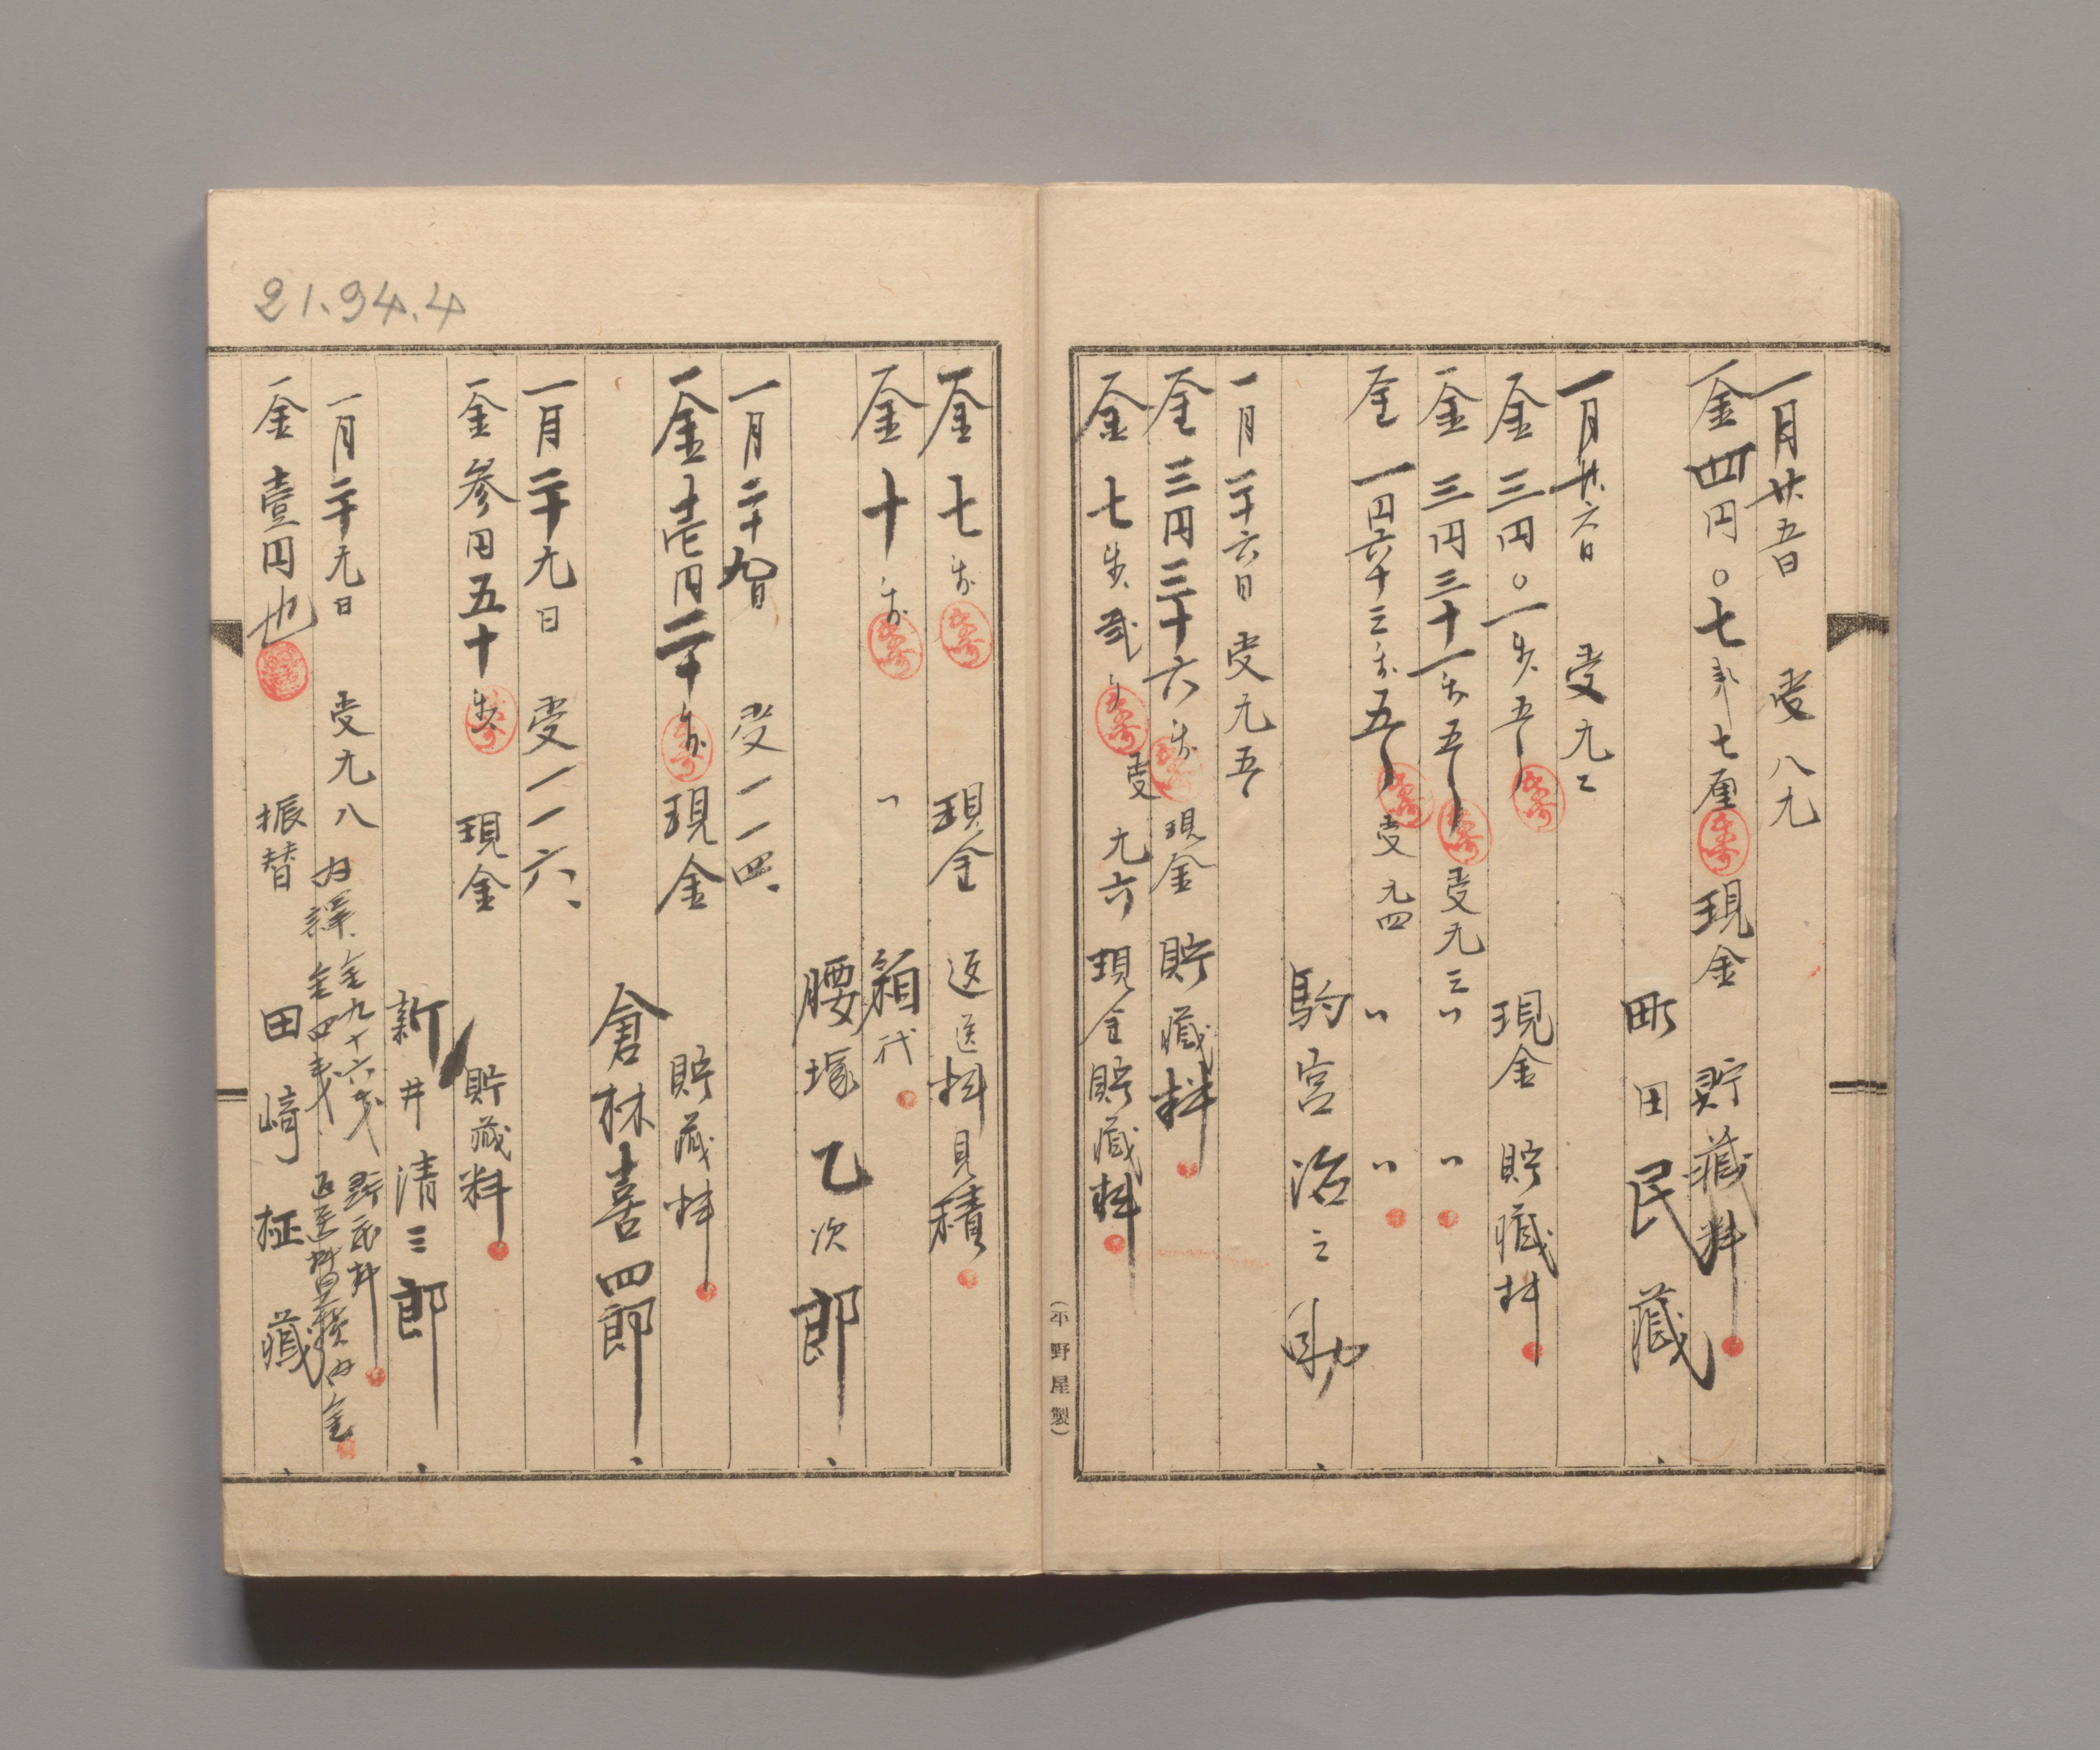 一月廿五日 受八九
一金四円〇七銭七厘 現金 貯藏料
町田民藏
一月廿六日 受九二
一金三円〇一銭五 現金 貯藏料
一金三円三十一銭五 受九三 〃 〃
一金一円六十三銭五 受九四 〃 〃
駒宮治之助
一月二十六日 受九五
一金三円三十六銭 現金 貯藏料
一金七銭弐 受九六 現金貯藏料
(平野屋製)
一金七銭 現金 返送料見積
一金十銭 〃 箱代
腰塚乙次郎
一月二十九日 受一一四、
一金壱円二十銭 現金 貯藏料
倉林喜四郎
一月二十九日 受一一六、
一金参円五十銭 現金 貯藏料
新井清三郎
一月二十九日 受九八 内譯 金九十六銭 貯藏料
金四銭 返送料見積内金
一金壹円也 振替 田﨑柾藏
21.94.4